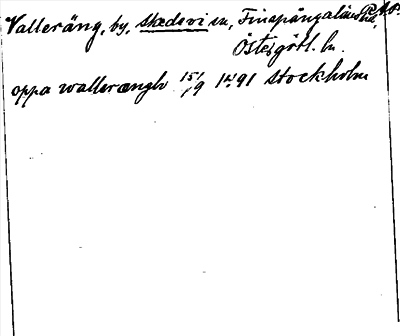 Valleräng, by, Skedevi sn, Finspångaläns hd, P.A.P.
Östergötl. ln.
oppa wallerængh 15/9 1491 Stockholm